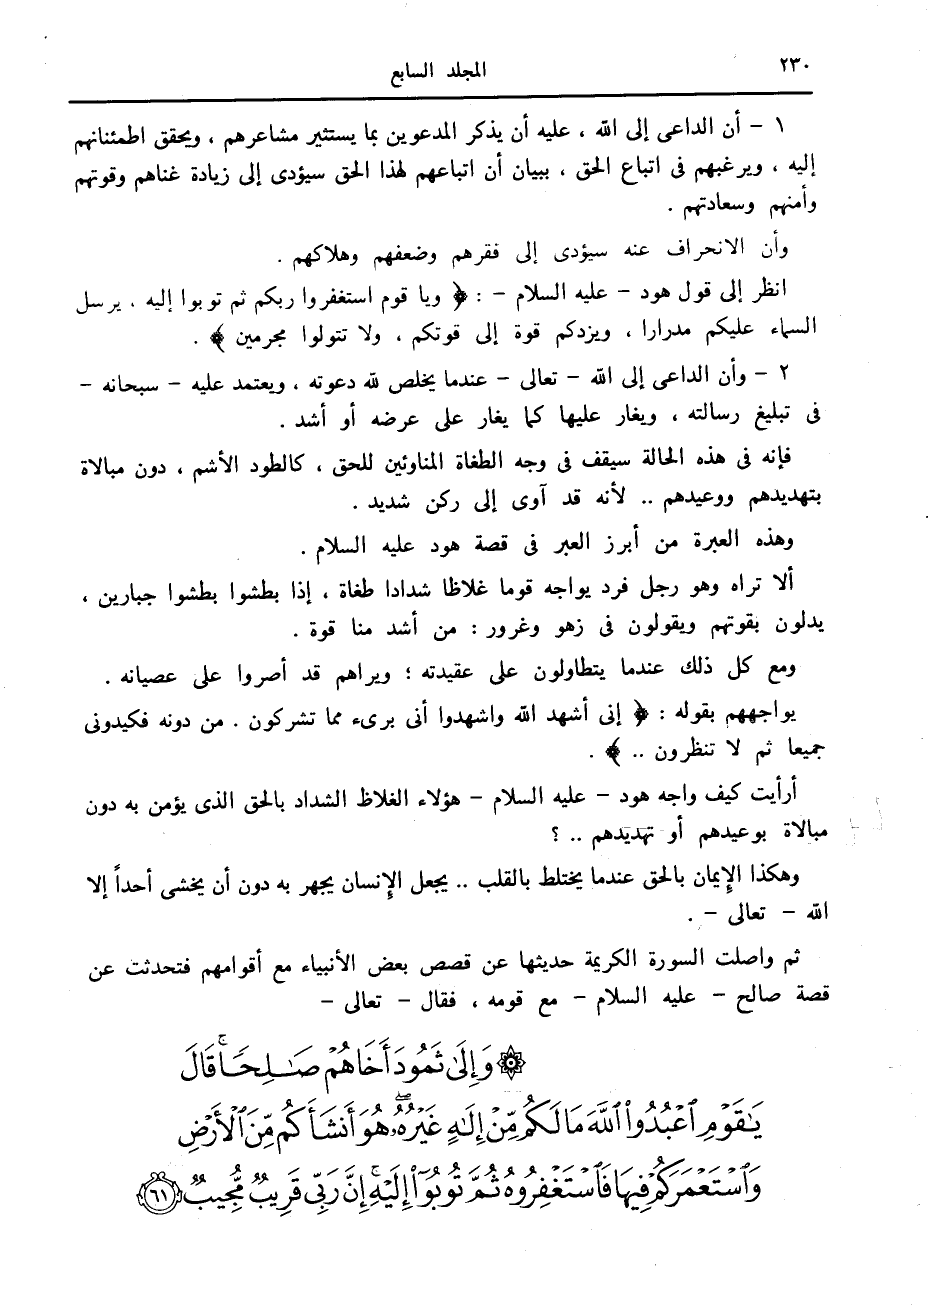 ٢٣٠
المجلد السابع
١ – أن الداعى إلى الله ، عليه أن يذكر المدعوين بما يستثير مشاعرهم ، ويحقق اطمئنانهم
إليه ، ويرغبهم فى اتباع الحق ، ببيان أن اتباعهم لهذا الحق سيؤدى إلى زيادة غناهم وقوتهم
وأمنهم وسعادتهم .
وأن الانحراف عنه سيؤدى إلى فقرهم وضعفهم وهلاكهم .
انظر إلى قول هود – عليه السلام – : ﴿ ويا قوم استغفروا ربكم ثم توبوا إليه . يرسل
السماء عليكم مدرارا ، ويزدكم قوة إلى قوتكم ، ولا تتولوا مجرمين ﴾ .
٢ – وأن الداعى إلى الله – تعالى – عندما يخلص لله دعوته ، ويعتمد عليه – سبحانه –
فى تبليغ رسالته ، ويغار عليها كما يغار على عرضه أو أشد .
فإنه فى هذه الحالة سيقف فى وجه الطغاة المناوئين للحق ، كالطود الأشم ، دون مبالاة
بتهديدهم ووعيدهم .. لأنه قد آوى إلى ركن شديد .
وهذه العبرة من أبرز العبر فى قصة هود عليه السلام .
ألا تراه وهو رجل فرد يواجه قوما غلاظا شدادا طغاة ، إذا بطشوا بطشوا جبارين ،
يدلون بقوتهم ويقولون فى زهو وغرور : من أشد منا قوة .
ومع كل ذلك عندما يتطاولون على عقيدته ؛ ويراهم قد أصروا على عصيانه .
يواجههم بقوله : ﴿ إنى أشهد الله واشهدوا أنى برىء مما تشركون . من دونه فكيدونى
جميعا ثم لا تنظرون .. ﴾ .
أرأيت كيف واجه هود – عليه السلام – هؤلاء الغلاظ الشداد بالحق الذى يؤمن به دون
مبالاة بوعيدهم أو تهديدهم .. ؟
وهكذا الإيمان بالحق عندما يختلط بالقلب .. يجعل الإنسان يجهر به دون أن يخشى أحداً إلا
الله – تعالى – .
ثم واصلت السورة الكريمة حديثها عن قصص بعض الأنبياء مع أقوامهم فتحدثت عن
قصة صالح – عليه السلام – مع قومه ، فقال – تعالى –
۞ وَإِلَىٰ ثَمُودَ أَخَاهُمْ صَـٰلِحًا ۚ قَالَ
يَـٰقَوْمِ ٱعْبُدُوا۟ ٱللَّهَ مَا لَكُم مِّنْ إِلَـٰهٍ غَيْرُهُۥ ۖ هُوَ أَنشَأَكُم مِّنَ ٱلْأَرْضِ
وَٱسْتَعْمَرَكُمْ فِيهَا فَٱسْتَغْفِرُوهُ ثُمَّ تُوبُوٓا۟ إِلَيْهِ ۚ إِنَّ رَبِّى قَرِيبٌ مُّجِيبٌ ٦١